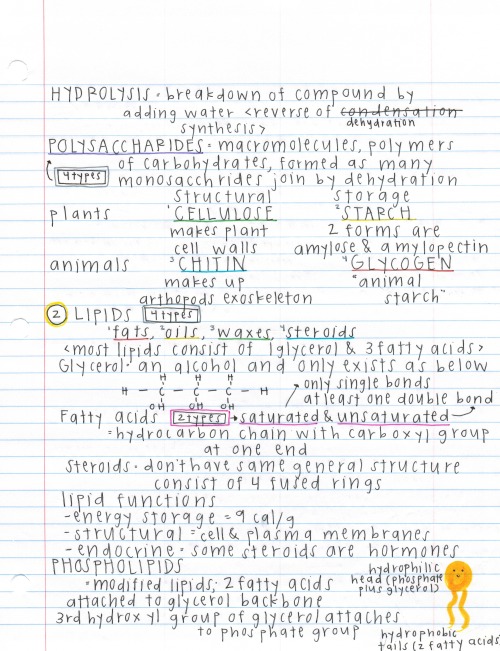 HYDROLYSIS = breakdown of compound by
adding water <reverse of condensation
dehydration
synthesis>
POLYSACCHARIDES = macromolecules, polymers
4 types
of carbohydrates, formed as many
monosacchrides join by dehydration
structural storage
plants ¹CELLULOSE ²STARCH
makes plant 2 forms are
cell walls amylose & amylopectin
animals ³CHITIN ⁴GLYCOGEN
makes up "animal
arthopods exoskeleton starch"
2 LIPIDS 4 types
¹fats, ²oils, ³waxes, ⁴steroids
<most lipids consist of 1glycerol & 3 fatty acids>
Glycerol = an alcohol and only exists as below
H H H
H - C - C - C - H
OH OH OH
only single bonds
at least one double bond
Fatty acids 2 types saturated & unsaturated
= hydrocarbon chain with carboxyl group
at one end
steroids = don't have same general structure
consist of 4 fused rings
lipid functions
- energy storage = 9 cal/g
- structural = cell & plasma membranes
- endocrine = some steroids are hormones
PHOSPHOLIPIDS
= modified lipids; 2 fatty acids
attached to glycerol backbone
3rd hydroxyl group of glycerol attaches
to phosphate group
hydrophilic
head (phosphate
plus glycerol)
hydrophobic
tails (2 fatty acids)